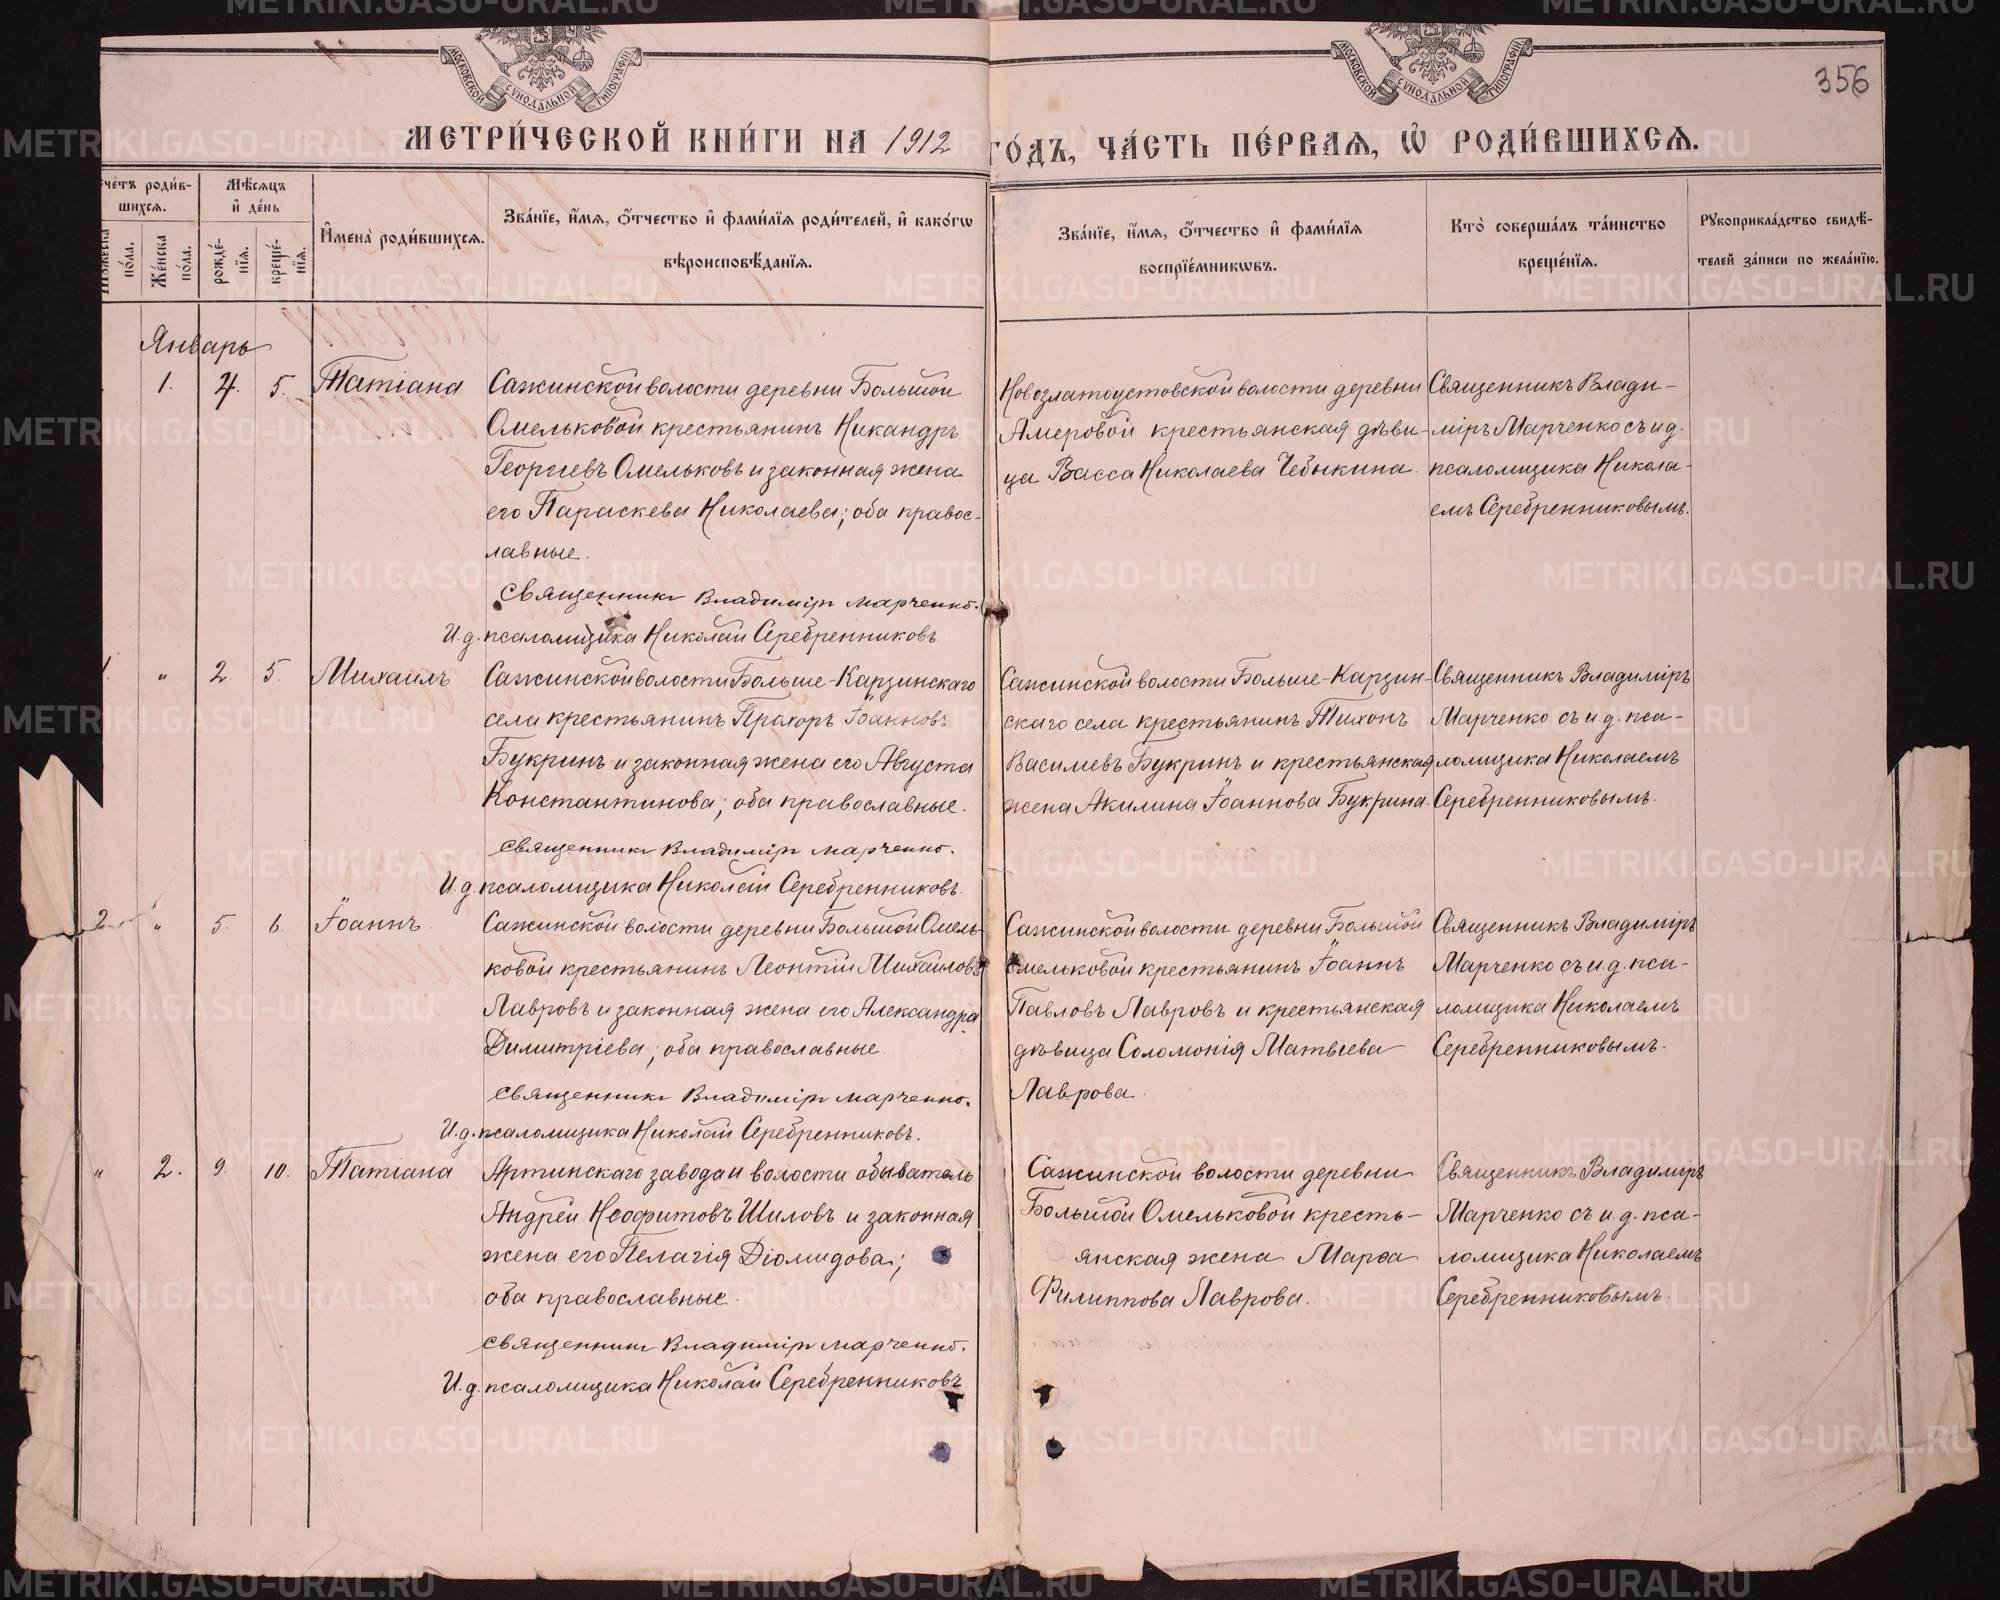 МОСКОВСКОЙ СѴНОДАЛЬНОЙ ТИПОГРАФІИ
МОСКОВСКОЙ СѴНОДАЛЬНОЙ ТИПОГРАФІИ
356
МЕТРИ́ЧЕСКОЙ КНИ́ГИ НА 1912 ГО́ДЪ, ЧА́СТЬ ПЕ́РВАѦ, Ѡ҆ РОДИ́ВШИХСѦ.
че́тъ роди́в-
шихсѧ.
Мѣ́сѧцъ
и҆ де́нь
И҆мена̀ роди́вшихсѧ.
Зва́нїе, и҆́мѧ, ѻ҆́тчество и҆ фами́лїѧ роди́телей, и҆ како́гѡ
вѣроисповѣ́данїѧ.
Зва́нїе, и҆́мѧ, ѻ҆́тчество и҆ фами́лїѧ
воспрїе́мникѡвъ.
Кто̀ соверша́лъ та́инство
креще́нїѧ.
Рꙋкоприкла́дство свидѣ́-
телей за́писи по жела́нїю.
Мꙋ́жеска
по́ла.
Же́нска
по́ла.
рожде́-
нїѧ.
креще́-
нїѧ.
Январь
1. 4. 5. Татіана
Сажинской волости деревни Большой
Омельковой крестьянинъ Никандръ
Георгіевъ Омельковъ и законная жена
его Параскева Николаева; оба правос-
лавные.
Священникъ Владиміръ Марченко.
И.д. псаломщика Николай Серебренниковъ
Новозлатоустовской волости деревни
Амеровой крестьянская дѣви-
ца Васса Николаева Чебыкина.
Священникъ Влади-
міръ Марченко съ и.д.
псаломщика Никола-
емъ Серебренниковымъ.
1. " 2. 5. Михаилъ
Сажинской волости Больше-Карзинскаго
села крестьянинъ Прохоръ Іоанновъ
Букринъ и законная жена его Августа
Константинова; оба православные.
Священникъ Владиміръ Марченко.
И.д. псаломщика Николай Серебренниковъ.
Сажинской волости Больше-Карзин-
скаго села крестьянинъ Тихонъ
Васильевъ Букринъ и крестьянская
жена Акилина Іоаннова Букрина.
Священникъ Владиміръ
Марченко съ и.д. пса-
ломщика Николаемъ
Серебренниковымъ.
2. " 5. 6. Іоаннъ.
Сажинской волости деревни Большой Омель-
ковой крестьянинъ Леонтій Михаиловъ
Лавровъ и законная жена его Александра
Димитріева; оба православные.
Священникъ Владиміръ Марченко.
И.д. псаломщика Николай Серебренниковъ.
Сажинской волости деревни Большой
Омельковой крестьянинъ Іоаннъ
Павловъ Лавровъ и крестьянская
дѣвица Соломонія Матвѣева
Лаврова.
Священникъ Владиміръ
Марченко съ и.д. пса-
ломщика Николаемъ
Серебренниковымъ.
" 2. 9. 10. Татіана
Артинскаго завода и волости обыватель
Андрей Неофитовъ Шиловъ и законная
жена его Пелагія Діомидова;
оба православные.
Священникъ Владиміръ Марченко.
И.д. псаломщика Николай Серебренниковъ
Сажинской волости деревни
Большой Омельковой кресть-
янская жена Марѳа
Филиппова Лаврова.
Священникъ Владиміръ
Марченко съ и.д. пса-
ломщика Николаемъ
Серебренниковымъ.
METRIKI.GASO-URAL.RU